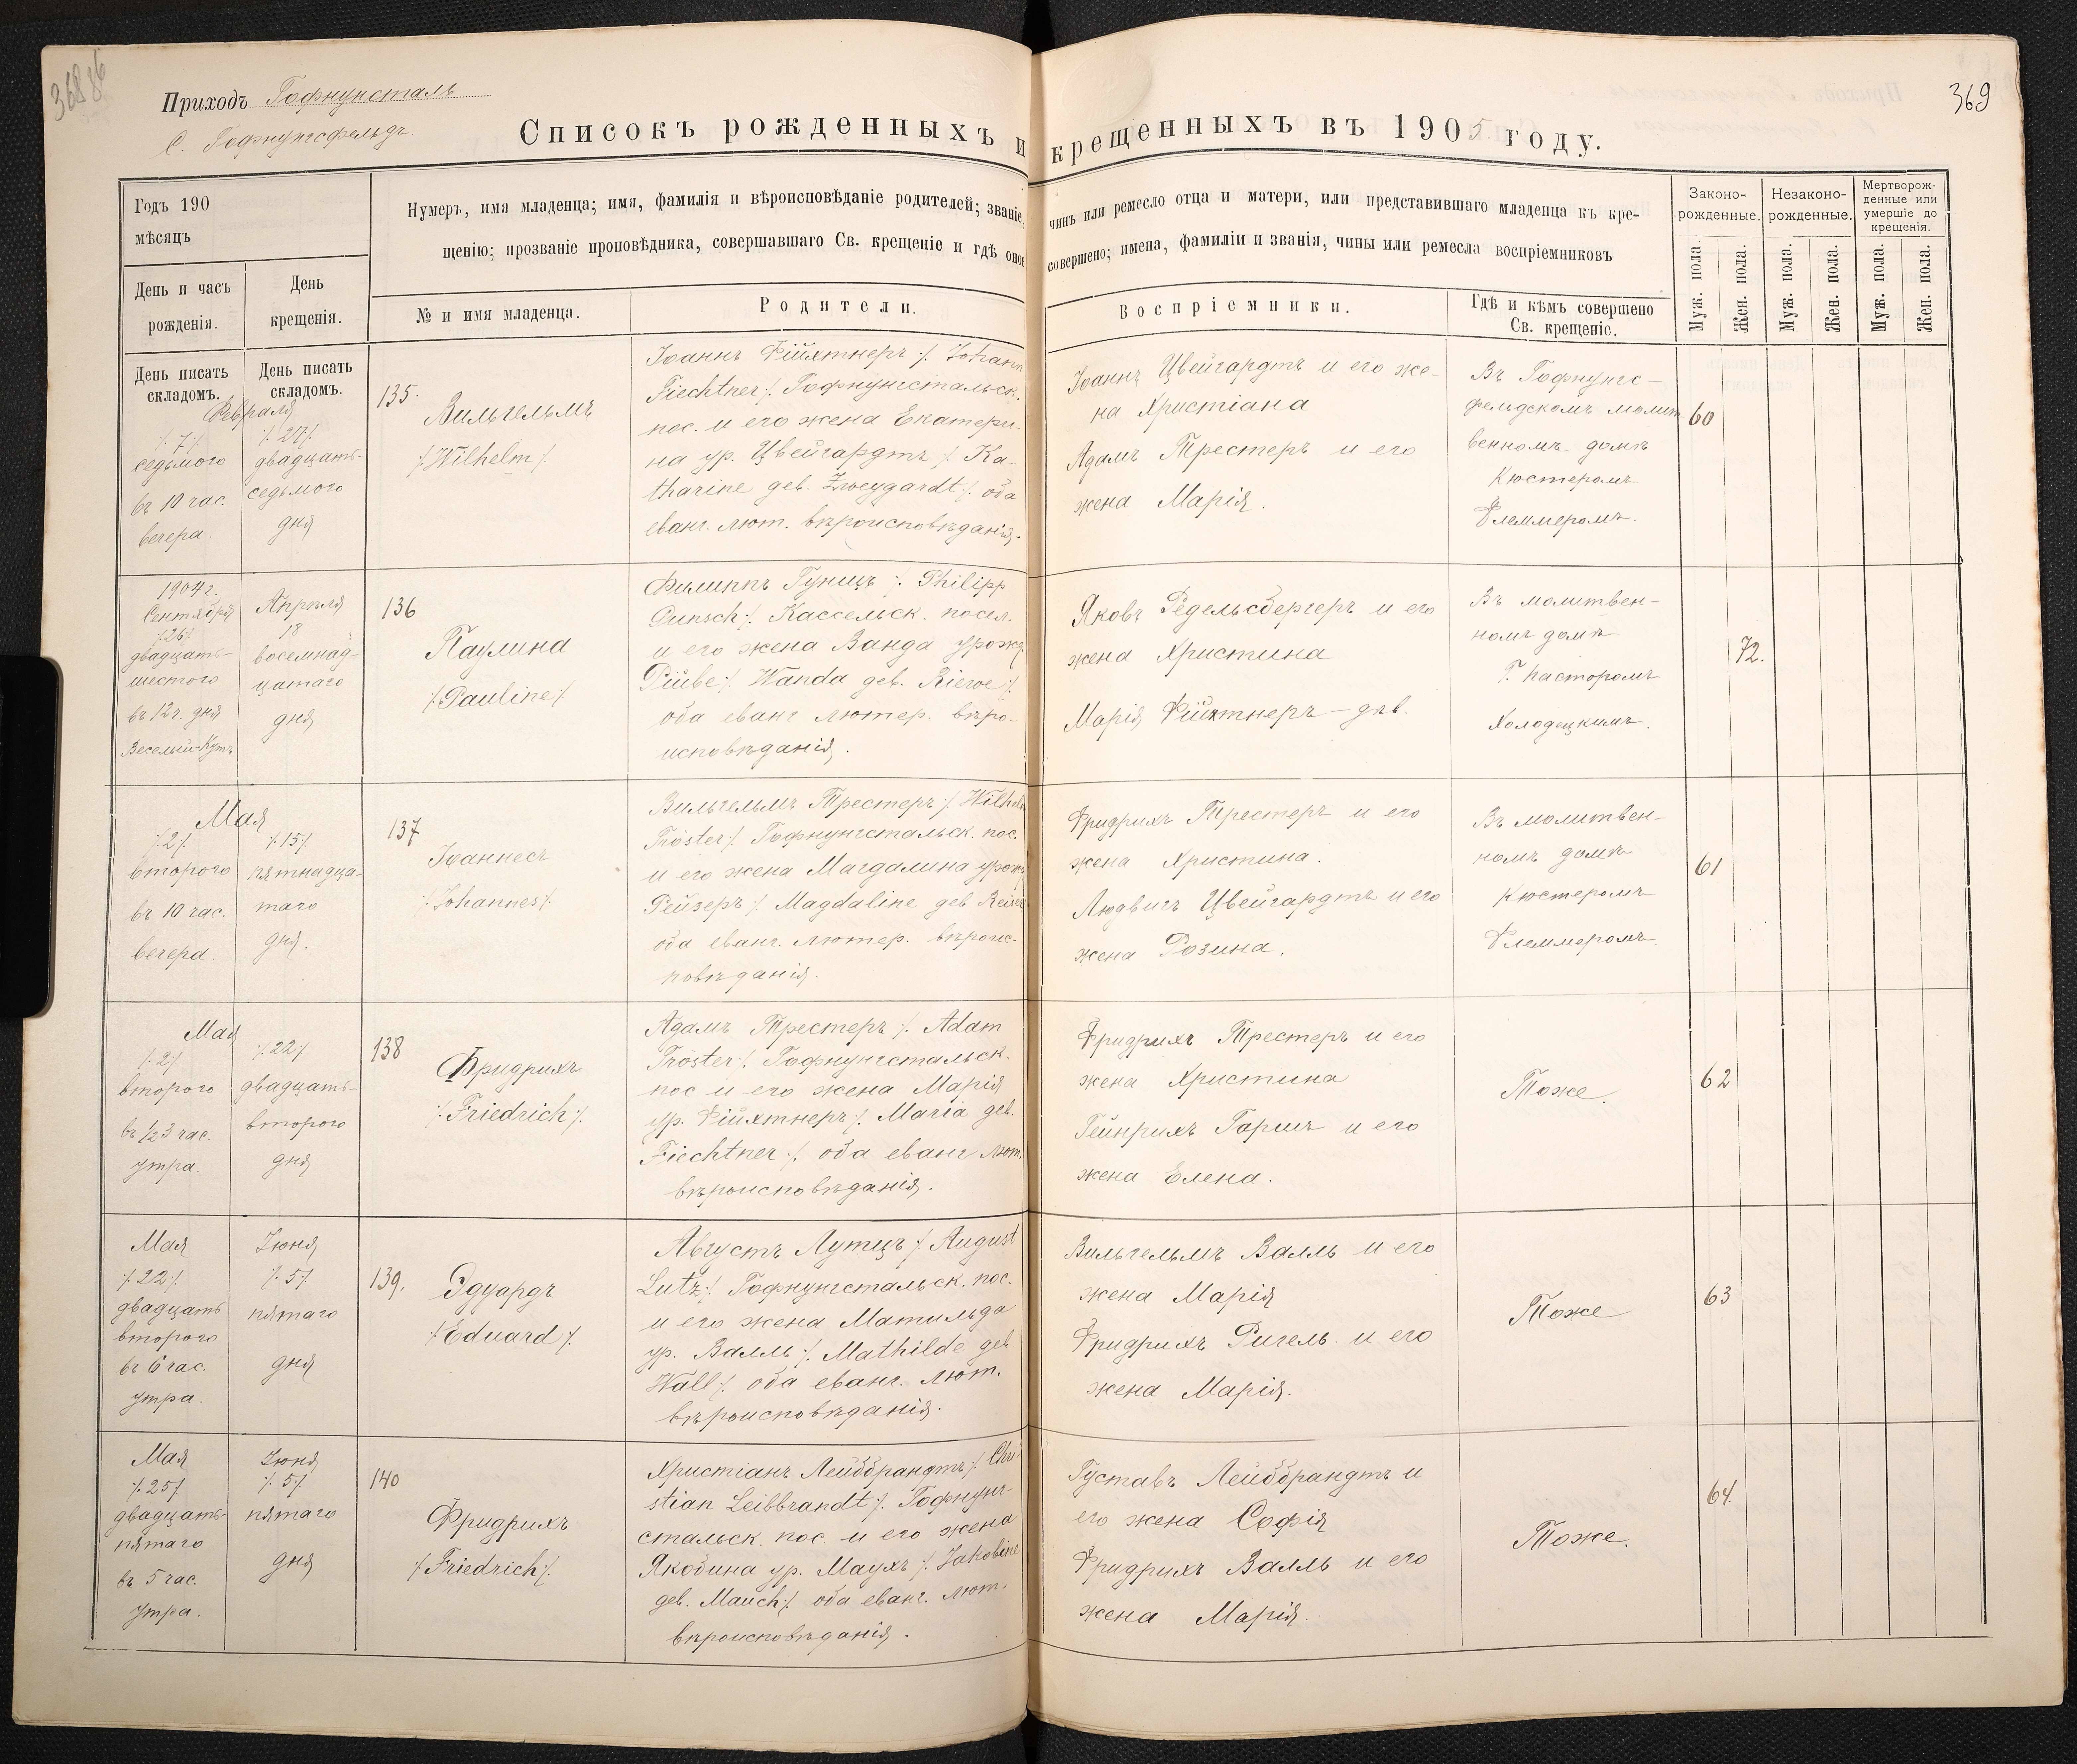 369
Приходъ Гофнунсталь
С. Гофнунгсфельдъ.
Списокъ рожденныхъ и крещенныхъ въ 1905 году.
Годъ 190
мѣсяцъ
День и часъ
рожденія.
День
крещенія.
Нумеръ, имя младенца; имя, фамилія и вѣроисповѣданіе родителей; званіе, чинъ или ремесло отца и матери, или представившаго младенца къ кре-
щенію; прозваніе проповѣдника, совершавшаго Св. крещеніе и гдѣ оное совершено; имена, фамиліи и званія, чины или ремесла воспріемниковъ
№ и имя младенца.
Родители.
Воспріемники.
Гдѣ и кѣмъ совершено
Св. крещеніе.
Законо-
рожденные.
Незаконо-
рожденные.
Мертворож-
денные или
умершіе до
крещенія.
Муж. пола.
Жен. пола.
Муж. пола.
Жен. пола.
Муж. пола.
Жен. пола.
День писать
складомъ.
День писать
складомъ.
Февраля
/. 7 /.
седьмого
въ 10 час.
вечера.
/. 27 /.
двадцать-
седьмого
дня
135.
Вильгельмъ
/. Wilhelm /.
Іоаннъ Фійхтнеръ /. Johann
Fiechtner /. Гофнунгстальск.
пос. и его жена Екатери-
на ур. Цвейгардтъ /. Ka-
tharine geb. Zweygardt /. оба
еванг. лют. вѣроисповѣданія.
Іоаннъ Цвейгардтъ и его же-
на Христіана
Адамъ Трестеръ и его
жена Марія.
Въ Гофнунгс-
фельдскомъ молит-
венномъ домѣ
Кюстеромъ
Флеммеромъ.
60
1904 г.
Сентября
/. 26 /.
двадцать-
шестого
въ 12 ч. дня
Веселый-Кутъ
Апрѣля
18
восемнад-
цатаго
дня
136
Паулина
/. Pauline /.
Филиппъ Гунцъ /. Philipp
Gunsch /. Кассельск. посел.
и его жена Ванда урожд.
Рiибе /. Wanda geb. Riewe /.
оба еванг лютер. вѣро-
исповѣданія.
Яковъ Редельсбергеръ и его
жена Христина
Марія Фійхтнеръ - дѣв.
Въ молитвен-
номъ домѣ
Г. пасторомъ
Холодецкимъ.
72.
Мая
/. 2 /.
второго
въ 10 час.
вечера.
/. 15 /.
пятнадца-
таго
дня.
137
Іоаннесъ
/. Johannes /.
Вильгельмъ Трестеръ /. Wilhelm
Tröster /. Гофнунгстальск. пос.
и его жена Магдалина урож.
Рейзеръ /. Magdaline geb
оба еванг. лютер. вѣроис-
повѣданія.
Фридрихъ Трестеръ и его
жена Христина.
Людвигъ Цвейгардтъ и его
жена Розина.
Въ молитвен-
номъ домѣ
Кюстеромъ
Флеммеромъ
61
Мая
/. 2 /.
второго
въ 1/2 3 час.
утра.
/. 22 /.
двадцать-
второго
дня
138
Фридрихъ
/. Friedrich /.
Адамъ Трестеръ /. Adam
Tröster /. Гофнунгстальск.
пос и его жена Марія
ур. Фійхтнеръ /. Maria geb.
Fiechtner /. оба еванг лют.
вѣроисповѣданія.
Фридрихъ Трестеръ и его
жена Христина
Гейнрихъ Гаришъ и его
жена Елена.
Тоже.
62
Мая
/. 22 /.
двадцать
второго
въ 6 час.
утра.
Іюня
/. 5 /.
пятаго
дня
139.
Эдуардъ
/. Eduard /.
Августъ Лутцъ /. August
Lutz /. Гофнунгстальск. пос.
и его жена Матильда
ур. Валль /. Mathilde geb.
Wall /. оба еванг. лют.
вѣроисповѣданія.
Вильгельмъ Валль и его
жена Марія
Фридрихъ Ригель и его
жена Марія.
Тоже
63
Мая
/. 25 /.
двадцать-
пятаго
въ 5 час.
утра.
Іюня
/. 5 /.
пятаго
дня
140
Фридрихъ
/. Friedrich /.
Христіанъ Лейббрандтъ /. Chri-
stian Leibbrandt /. Гофнунг-
стальск. пос. и его жена
Якобина ур. Маухъ /. Jakobine
geb. Mauch /. оба еванг. лют.
вѣроисповѣданія.
Густавъ Лейббрандтъ и
его жена Софія
Фридрихъ Валль и его
жена Марія.
Тоже.
64.